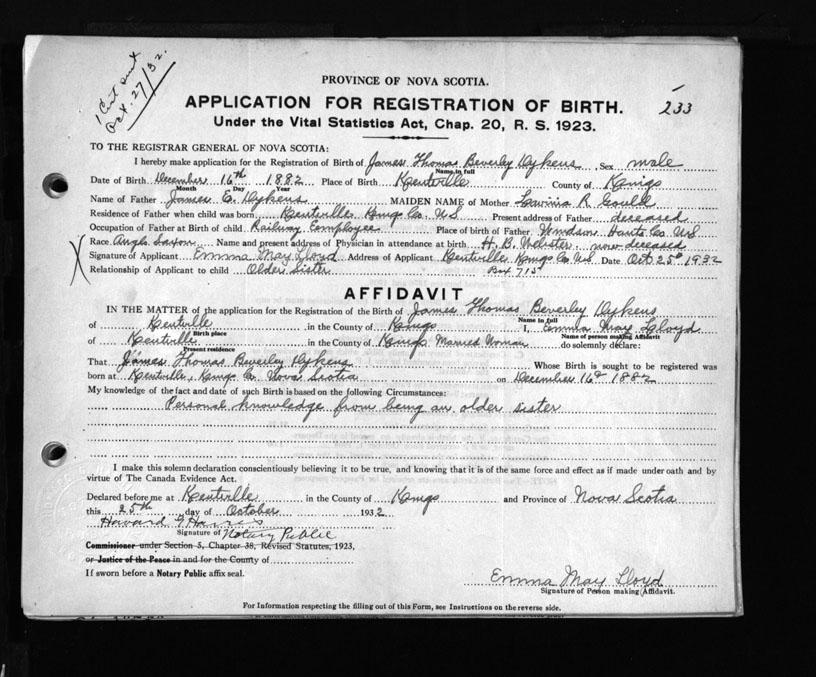 1 Cert sent
Oct. 27/32.
PROVINCE OF NOVA SCOTIA.
APPLICATION FOR REGISTRATION OF BIRTH.
233
Under the Vital Statistics Act, Chap. 20, R. S. 1923.
TO THE REGISTRAR GENERAL OF NOVA SCOTIA:
I hereby make application for the Registration of Birth of James Thomas Beverley Dykens, Sex male
Name in full
Date of Birth December 16th 1882 Place of Birth Kentville County of Kings
Month Day Year
Name of Father James E. Dykens MAIDEN NAME of Mother Lavinia R Gould
Residence of Father when child was born Kentville Kings Co. N.S Present address of Father deceased
Occupation of Father at Birth of child Railway Employee Place of birth of Father Windsor Hants Co N.S
X Race Anglo Saxon Name and present address of Physician in attendance at birth H. B. Webster now deceased
Signature of Applicant Emma May Lloyd Address of Applicant Kentville Kings Co N.S Date Oct 25th 1932
Relationship of Applicant to child Older Sister Box 715
AFFIDAVIT
IN THE MATTER of the application for the Registration of the Birth of James Thomas Beverley Dykens
Name in full
of Kentville in the County of Kings I, Emma May Lloyd
Birth place Name of person making Affidavit
of Kentville in the County of Kings Married Woman do solemnly declare:
Present residence
That James Thomas Beverley Dykens Whose Birth is sought to be registered was
born at Kentville, Kings Co Nova Scotia on December 16th 1882
My knowledge of the fact and date of such Birth is based on the following Circumstances:
Personal knowledge from being an older sister
I make this solemn declaration conscientiously believing it to be true, and knowing that it is of the same force and effect as if made under oath and by
virtue of The Canada Evidence Act.
Declared before me at Kentville in the County of Kings and Province of Nova Scotia
this 25th day of October 1932
Harris
Signature of Notary Public
Commissioner under Section 5, Chapter 38, Revised Statutes, 1923,
or Justice of the Peace in and for the County of
If sworn before a Notary Public affix seal.
Emma May Lloyd
Signature of Person making Affidavit.
For Information respecting the filling out of this Form, see Instructions on the reverse side.